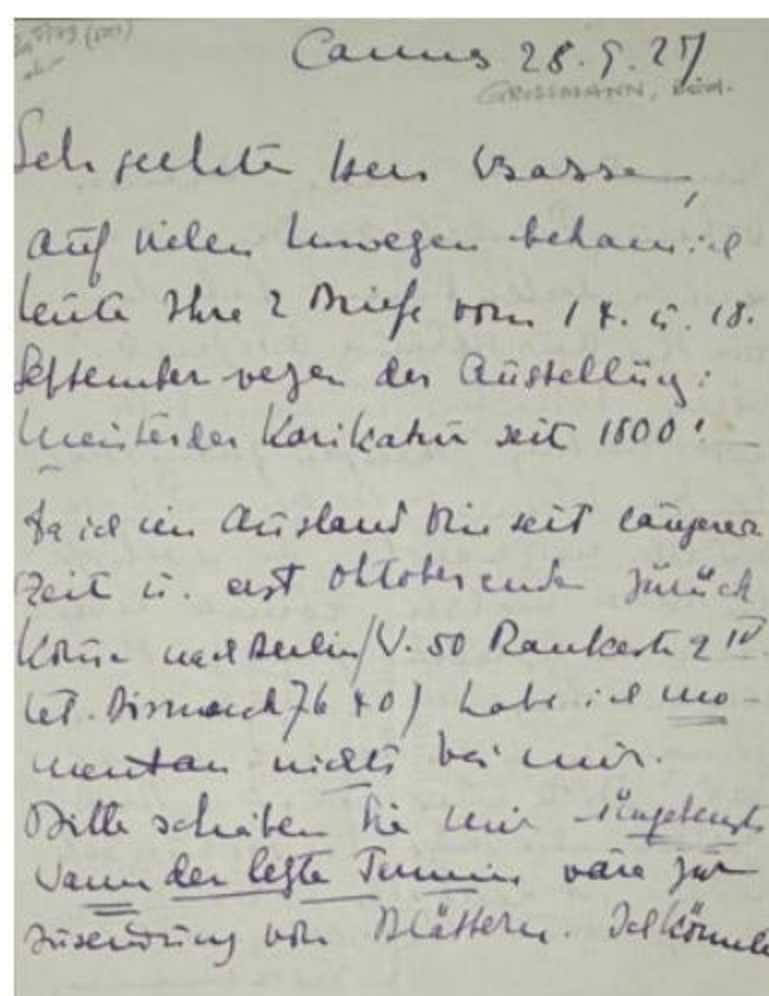 Cannes 28.9.27
GROSSMANN, Rud.
Sehr geehrter Herr Basse,
auf vielen Umwegen bekam ich
heute Ihre 2 Briefe vom 14. u. 18.
September wegen der Ausstellung:
Meister der Karikatur seit 1800!
Da ich im Ausland bin seit längerer
Zeit u. erst Oktoberende zurück
komme nach Berlin/W. 50 Rankestr. 9 IV
tel. Bismarck 76 40) habe ich mo-
mentan nichts bei mir.
Bitte schreiben Sie mir umgehend
wann der letzte Termin wäre zur
Zusendung von Blättern. Ich könnte